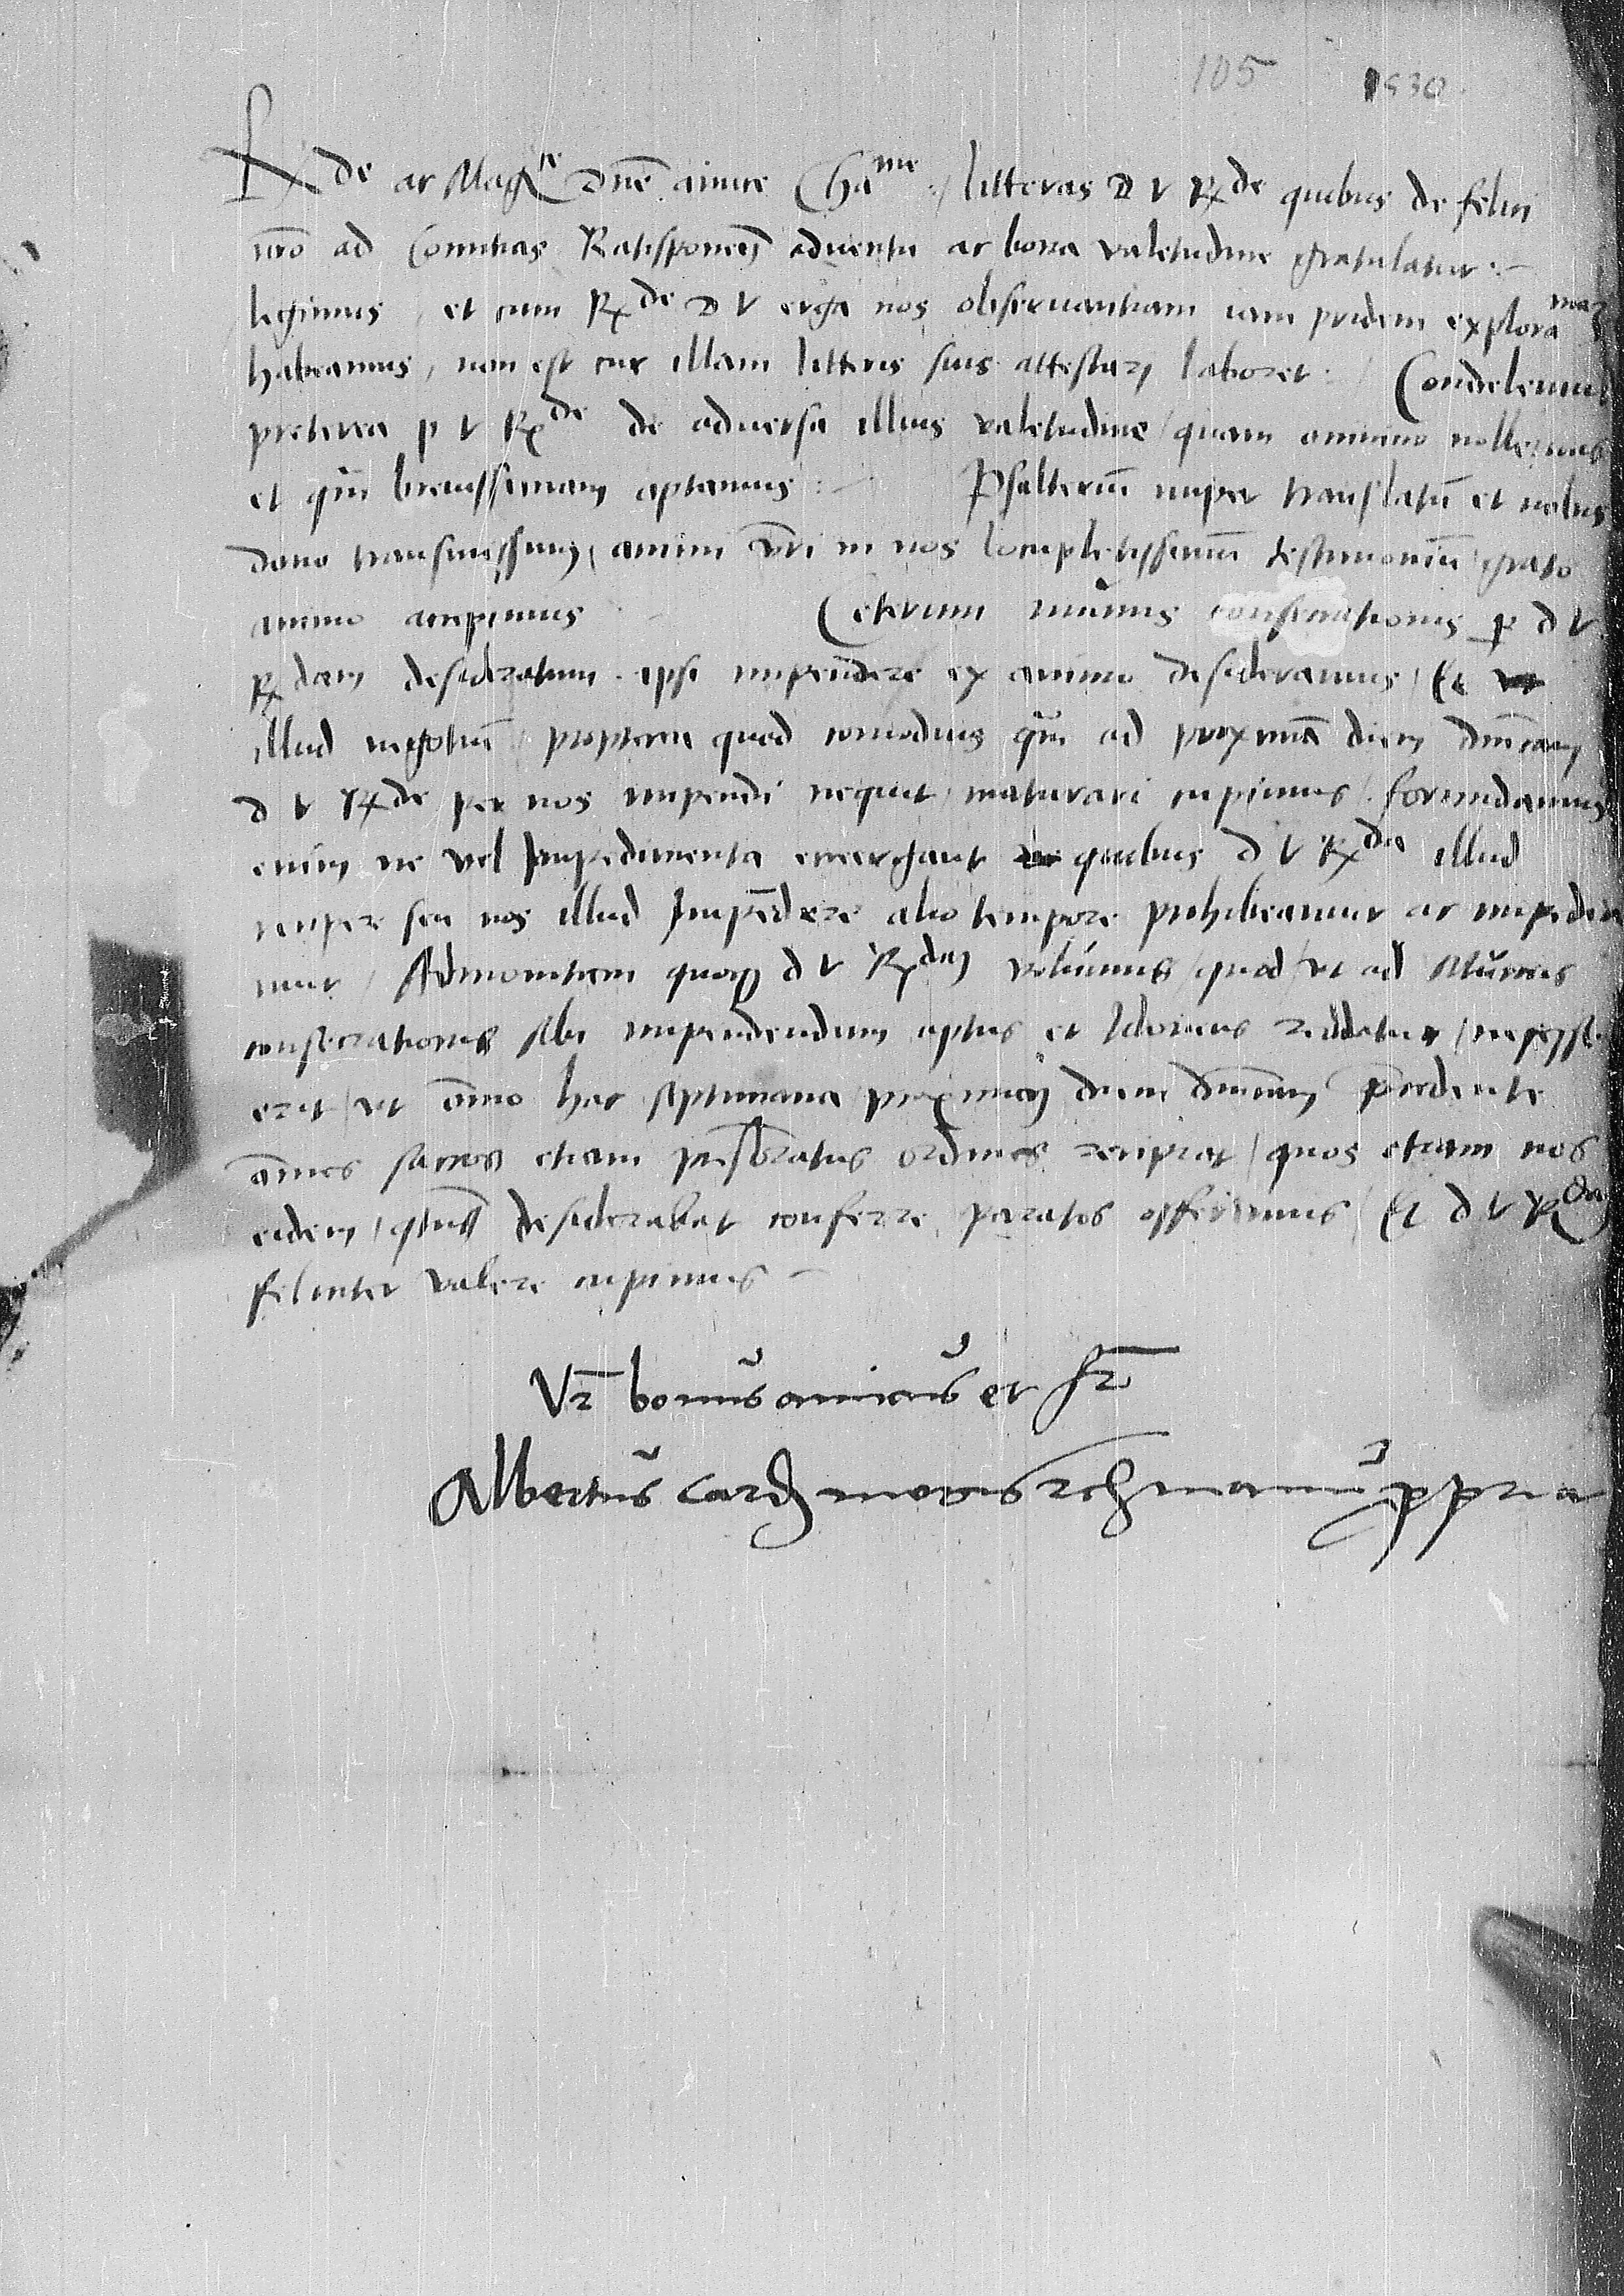 105 1530
Rde ac Magce dne amice Chame: litteras D V Rde quibus de felici
nro ad Comitias Ratisponen adventu ac bona valetudine gratulatur:
legimus, et cum Rde D V erga nos observantiam iam pridem explora
habeamus, non est cur illam litteris suis attestari laboret: Condolemus
preterea p V Rde de adversa illius valetudine / quam omnino nollemus
et qm brevissimam optamus: Psalterium nuper translatu et nobis
dono transmissum, animi vri in nos locupletissimum testimonium / grato
animo accepimus Ceterum munus consecrationis p d V
Rdam desideratum ipsi impendere ex animo desideramus, Et
illud negotiu / propterea quod comodius qm ad proxima diem dnicam
d V Rde per nos impendi nequit, maturari cupimus / formidamus
enim ne vel Impedimenta emergant quibus d V Rda illud
recipere seu nos illud Impedere alio tempore prohibeamur ac impedia
mur / Admonitam quoq d V Rdam volumus, quod / ut ad Munus
consecrationis sibi impendendum aptus et Idoneus reddatur / necesse
erit / ut omo hac septimana / proximam diem dnicam precedente
omnes sacros etiam presbiratus ordines recipiat / quos etiam nos
eidem / desiderabat conferre paratos offerimus / Et d V Rdam
feliciter valere cupimus
Vr bonus amicus et fr
Albertus card mogus manu ppria